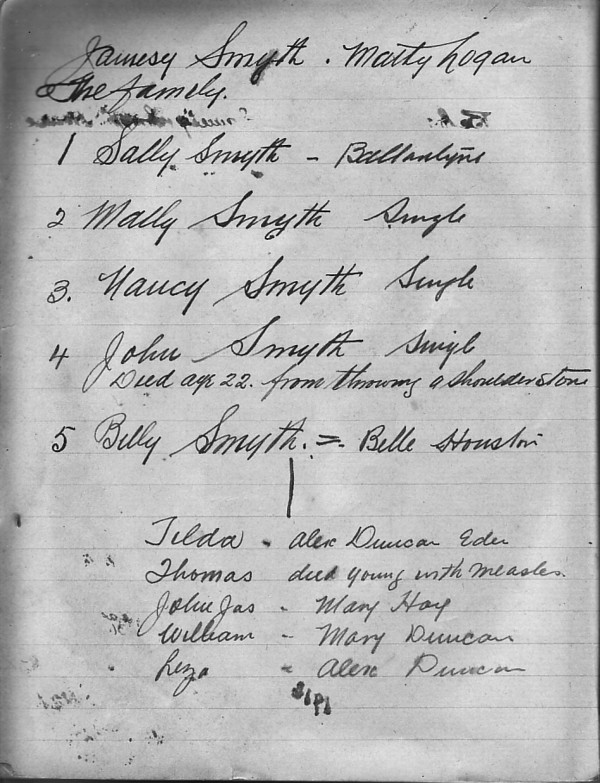 Jamesy Smyth. Matty Logan
The family.
1 Sally Smyth - Ballantyne
2 Mally Smyth Single
3. Nancy Smyth Single
4 John Smyth Single
Died age 22. from throwing a shoulder stone
5 Billy Smyth. = Belle Houston
Tilda - Alex Duncan Eden
Thomas died young with measles.
John Jas - Mary Hoy
William - Mary Duncan
Liza - Alex Duncan